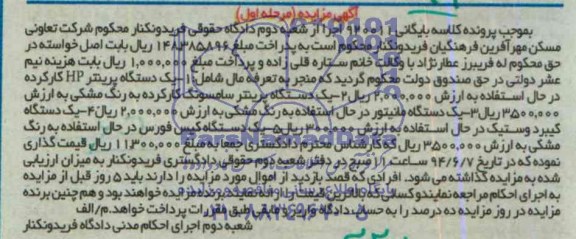 آگهی مزایده (مرحله اول)
بموجب پرونده کلاسه بایگانی اجرا از شعبه دوم دادگاه حقوقی فریدونکنار محکوم شرکت تعاونی
مسکن مهرآفرین فرهنگیان فریدونکنار محکوم است به پرداخت مبلغ ۱۴۸۳۸۵۸۹۶ ریال بابت اصل خواسته در
حق محکوم له فریبرز عطارنژاد با وکالت خانم ستاره قلی زاده و پرداخت مبلغ ۱,۰۰۰,۰۰۰ ریال بابت هزینه نیم
عشر دولتی در حق صندوق دولت محکوم گردید که منجر به تعرفه مال شامل: ۱-یک دستگاه پرینتر HP کارکرده
در حال استفاده به ارزش ۲,۰۰۰,۰۰۰ ریال ۲-یک دستگاه پرینتر سامسونگ کارکرده به رنگ مشکی به ارزش
۳۵۰۰,۰۰۰ ریال ۳-یک دستگاه مانیتور در حال استفاده به رنگ مشکی به ارزش ۲,۰۰۰,۰۰۰ ریال ۴-یک دستگاه
کیبرد وستیک در حال استفاده به ارزش ریال ۵-یک دستگاه کیس فورس در حال استفاده به رنگ
مشکی به ارزش ۳۵۰۰,۰۰۰ ریال که کارشناس محترم دادگستری جمعا به مبلغ ۱۱,۳۰۰,۰۰۰ ریال قیمت گذاری
نموده که در تاریخ ۹۴/۶/۷ ساعت صبح در دفتر شعبه دوم حقوقی دادگستری فریدونکنار به میزان ارزیابی
شده به مزایده گذاشته می شود. افرادی که قصد بازدید از اموال مورد مزایده را دارند باید ۵ روز قبل از مزایده
به اجرای احکام مراجعه نمایند و کسانی که بالاترین قیمت را ارائه نمایند برنده مزایده خواهند بود و هم چنین برنده
مزایده در روز مزایده ده درصد را به حساب دادگاه واریز و مابقی طبق مقررات پرداخت خواهد.م/الف
شعبه دوم اجرای احکام مدنی دادگاه فریدونکنار